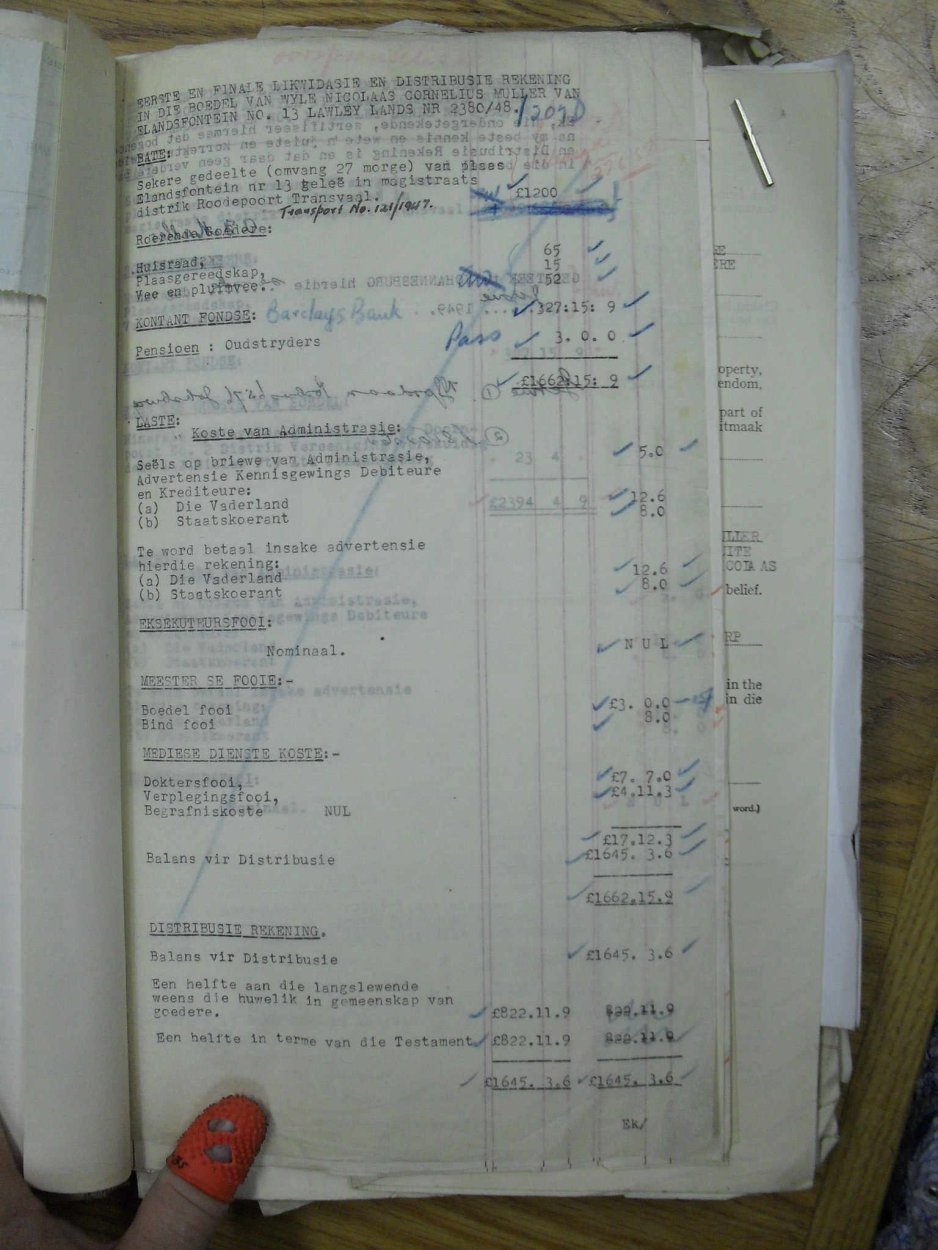 EERSTE EN FINALE LIKWIDASIE EN DISTRIBUSIE REKENING
IN DIE BOEDEL VAN WYLE NICOLAAS CORNELIUS MULLER VAN
ELANDSFONTEIN NO. 13 LAWLEY LANDS NR 2380/48.
BATE:
Sekere gedeelte (omvang 27 morge) van plaas
Elandsfontein nr 13 geleë in magistraats
distrik Roodepoort Transvaal. £1200
Transport No. 121/1947.
Roerende Goedere:
Huisraad, 65
Plaasgereedskap, 15
Vee en pluimvee.. 52
KONTANT FONDSE: Barclays Bank 327:15: 9
Pensioen : Oudstryders Pass 3. 0. 0
£1662:15: 9
LASTE:
Koste van Administrasie:
Seëls op briewe van Administrasie, 5.0
Advertensie Kennisgewings Debiteure
en Krediteure:
(a) Die Vaderland 12.6
(b) Staatskoerant 8.0
Te word betaal insake advertensie
hierdie rekening:
(a) Die Vaderland 12.6
(b) Staatskoerant 8.0
EKSEKUTEURSFOOI:
Nominaal. N U L
MEESTER SE FOOIE:-
Boedel fooi £3. 0.0
Bind fooi 8.0
MEDIESE DIENSTE KOSTE:-
Doktersfooi, £7. 7.0
Verplegingsfooi, £4.11.3
Begrafniskoste NUL
£17.12.3
Balans vir Distribusie £1645. 3.6
£1662.15.9
DISTRIBUSIE REKENING.
Balans vir Distribusie £1645. 3.6
Een helfte aan die langslewende
weens die huwelik in gemeenskap van
goedere. £822.11.9 822.11.9
Een helfte in terme van die Testament £822.11.9 822.11.9
£1645. 3.6 £1645. 3.6
Ek/
operty,
endom,
part of
itmaak
belief.
in the
in die
word.)